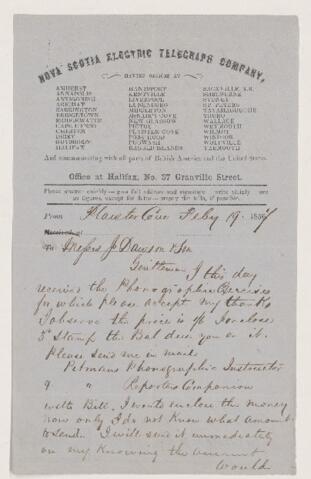 NOVA SCOTIA ELECTRIC TELEGRAPH COMPANY,
HAVING OFFICES AT
AMHERST HANTSPORT SACKVILLE, N.B.
ANNAPOLIS KENTVILLE SHELBURNE
ANTIGONISH LIVERPOOL SYDNEY
ARICHAT LUNENBURG ST. PETERS
BARRINGTON MIDDLETON TATAMAGOUCHE
BRIDGETOWN TRURO
BRIDGEWATER NEW GLASGOW WALLACE
PICTOU WEYMOUTH
CHESTER PLAISTER COVE WILMOT
DIGBY PORT HOOD WINDSOR
PUGWASH WOLFVILLE
HALIFAX RAGGED ISLANDS YARMOUTH
And communicating with all parts of British America and the United States.
Office at Halifax, No. 37 Granville Street.
From Plaister Cove Feby 19 1857
To Messrs J Dawson & Son
Gentlemen I this day
received the Phonographic Exercises
for which Please accept my thanks
I observe the price is I enclose
Stamp the Bal due you on it.
Please send me in mail
Pitmans Phonographic Instructor
" Reporters Companion
with Bill. I would enclose the money
now only I do not know what amount
to send. I will send it immediately
on my knowing the amount
Would